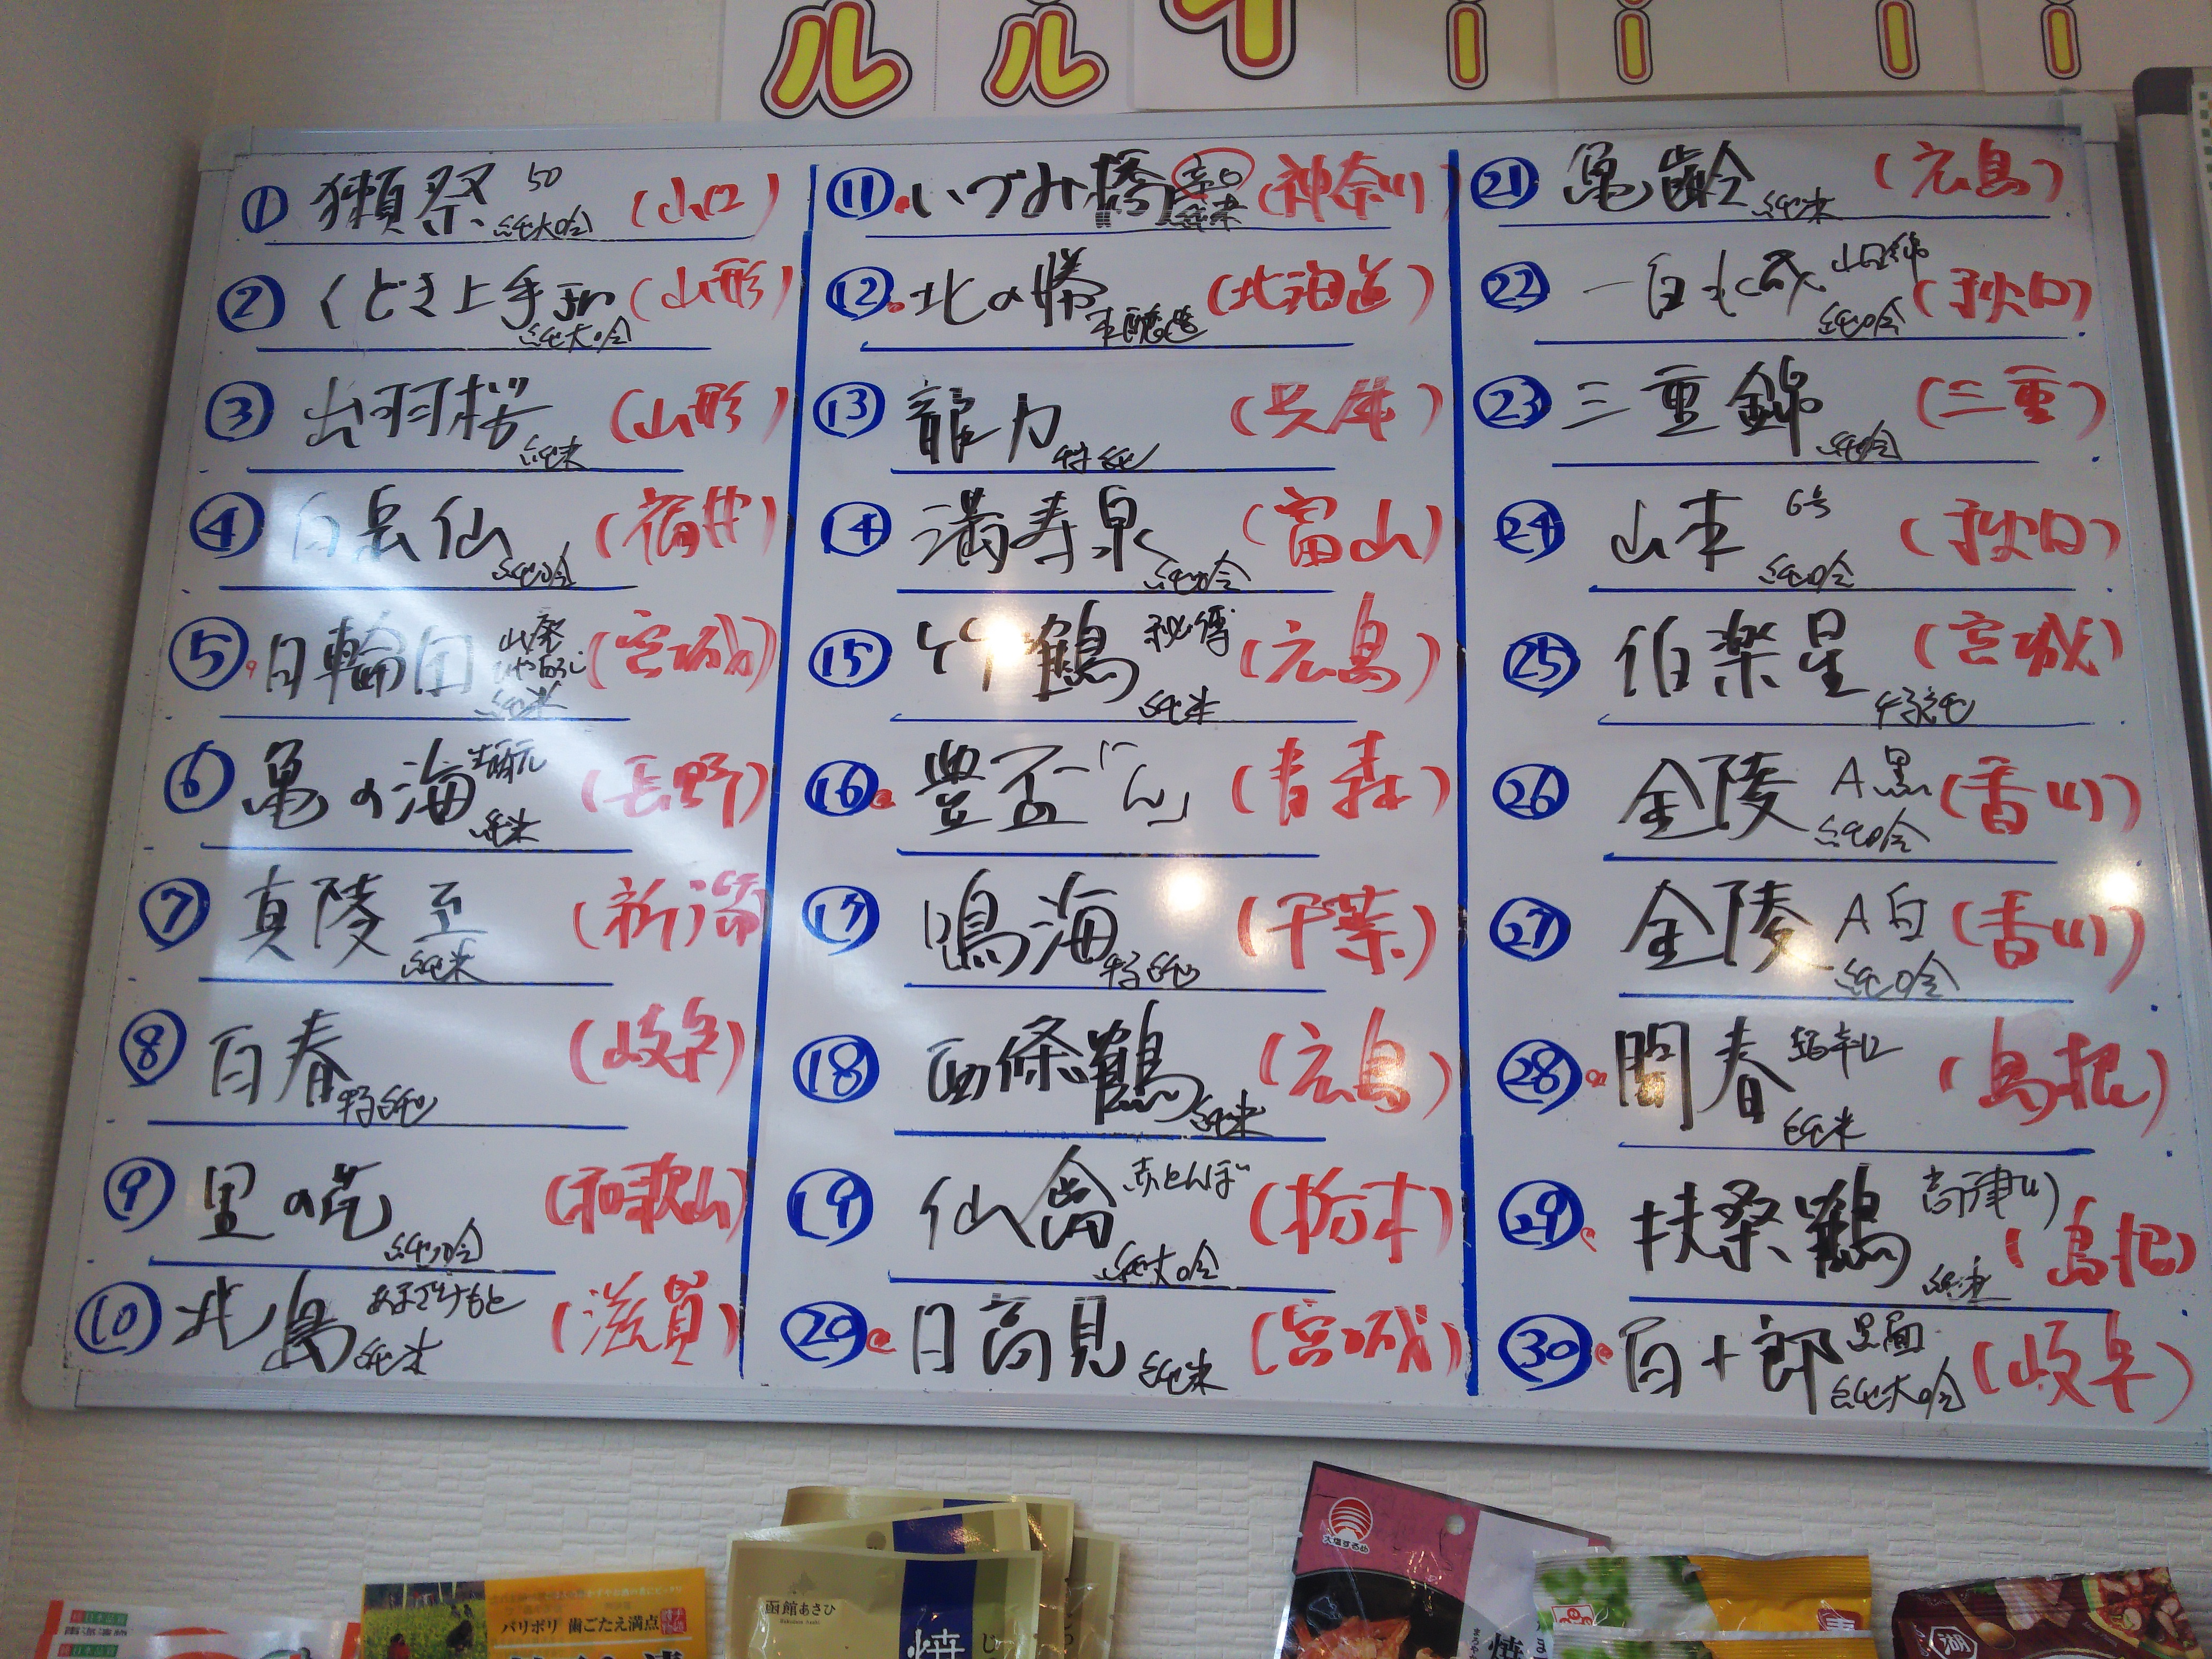 ル ル イ ー ー ー ー
① 獺祭 50 純大吟 (山口)
② くどき上手 Jr 純大吟 (山形)
③ 出羽桜 純米 (山形)
④ 白岳仙 純吟 (福井)
⑤ 日輪田 山廃 純米 (宮城)
⑥ 亀の海 純米 (長野)
⑦ 真陵 至 純米 (新潟)
⑧ 百春 特純 (岐阜)
⑨ 里の花 純吟 (和歌山)
⑩ 北島 純米 (滋賀)
⑪ いづみ橋 辛口 純米 (神奈川)
⑫ 北の勝 本醸造 (北海道)
⑬ 龍力 特純 (兵庫)
⑭ 満寿泉 純吟 (富山)
⑮ 竹鶴 秘傳 純米 (広島)
⑯ 豊盃「ん」 (青森)
⑰ 鳴海 特純 (千葉)
⑱ 西條鶴 純米 (広島)
⑲ 仙禽 赤とんぼ 純大吟 (栃木)
⑳ 日高見 純米 (宮城)
㉑ 亀齢 純米 (広島)
㉒ 一白水成 山田錦 純吟 (秋田)
㉓ 三重錦 純吟 (三重)
㉔ 山本 6号 純吟 (秋田)
㉕ 伯楽星 特純 (宮城)
㉖ 金陵 A黒 純吟 (香川)
㉗ 金陵 A白 純吟 (香川)
㉘ 開春 超辛口 純米 (島根)
㉙ 扶桑鶴 高津川 純米 (島根)
㉚ 百十郎 黒面 純大吟 (岐阜)
パリポリ 歯ごたえ満点
函館あさひ
焼
じ
湖